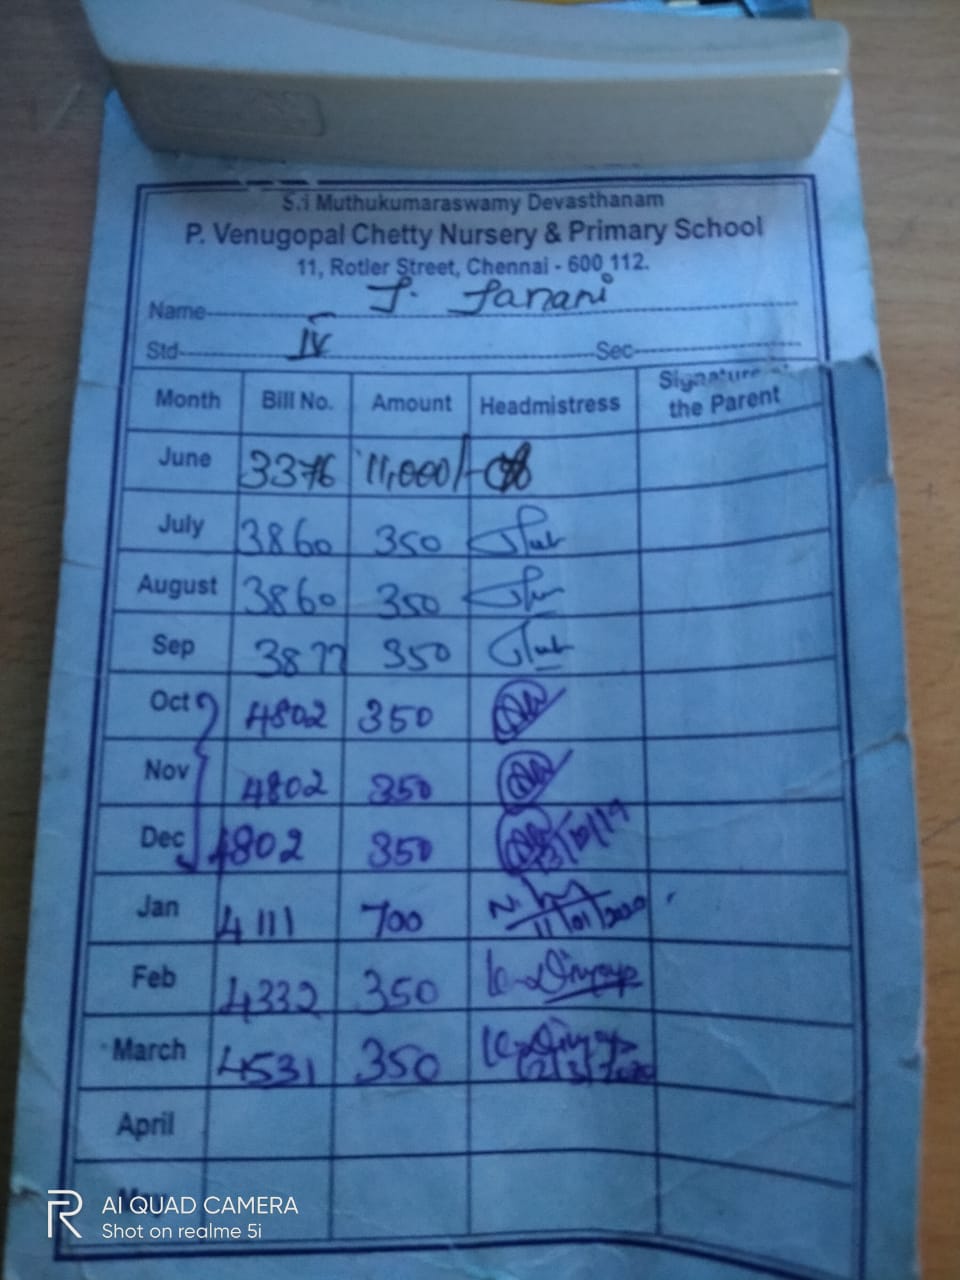 S.i Muthukumaraswamy Devasthanam
P. Venugopal Chetty Nursery & Primary School
11, Rotler Street, Chennai - 600 112.
Name J. Janani
Std IV Sec
Month Bill No. Amount Headmistress Signature of the Parent
June 3376 11,000/-
July 3860 350
August 3860 350
Sep 3877 350
Oct 4802 350
Nov 4802 350
Dec 4802 350
Jan 4111 700 11/01/2020
Feb 4332 350
March 4531 350
April
AI QUAD CAMERA
Shot on realme 5i